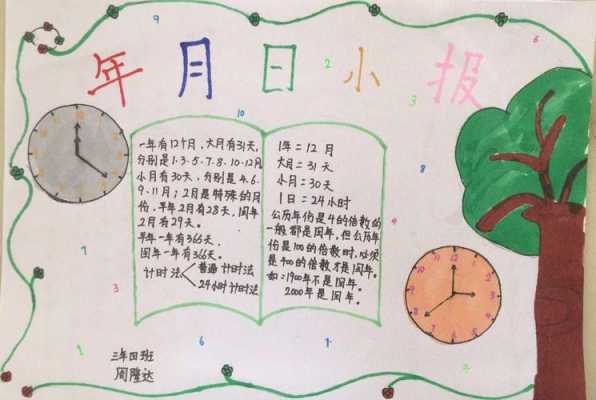 年月日小报
9
6
2
3
10
8
7
3
6
1
一年有12个月,大月有31天,
分别是1.3.5.7.8.10.12月
小月有30天,分别是4.6.
9.11月;2月是特殊的月
份,平年2月有28天,闰年
2月有29天。
平年一年有366天.
闰年一年有366天。
计时法
普通计时法
24小时计时法
1年=12月
大月=31天
小月=30天
1日=24小时
公历年份是4的倍数的
一般都是闰年。但公历年
份是100的倍数时,必须
是400的倍数才是闰年。
如:1900年不是闰年。
2000年是闰年。
三年四班
周隆达